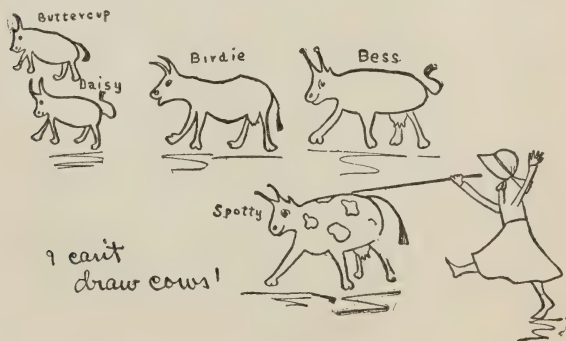 Buttercup
Daisy
Birdie
Bess
Spotty
I can't
draw cows!